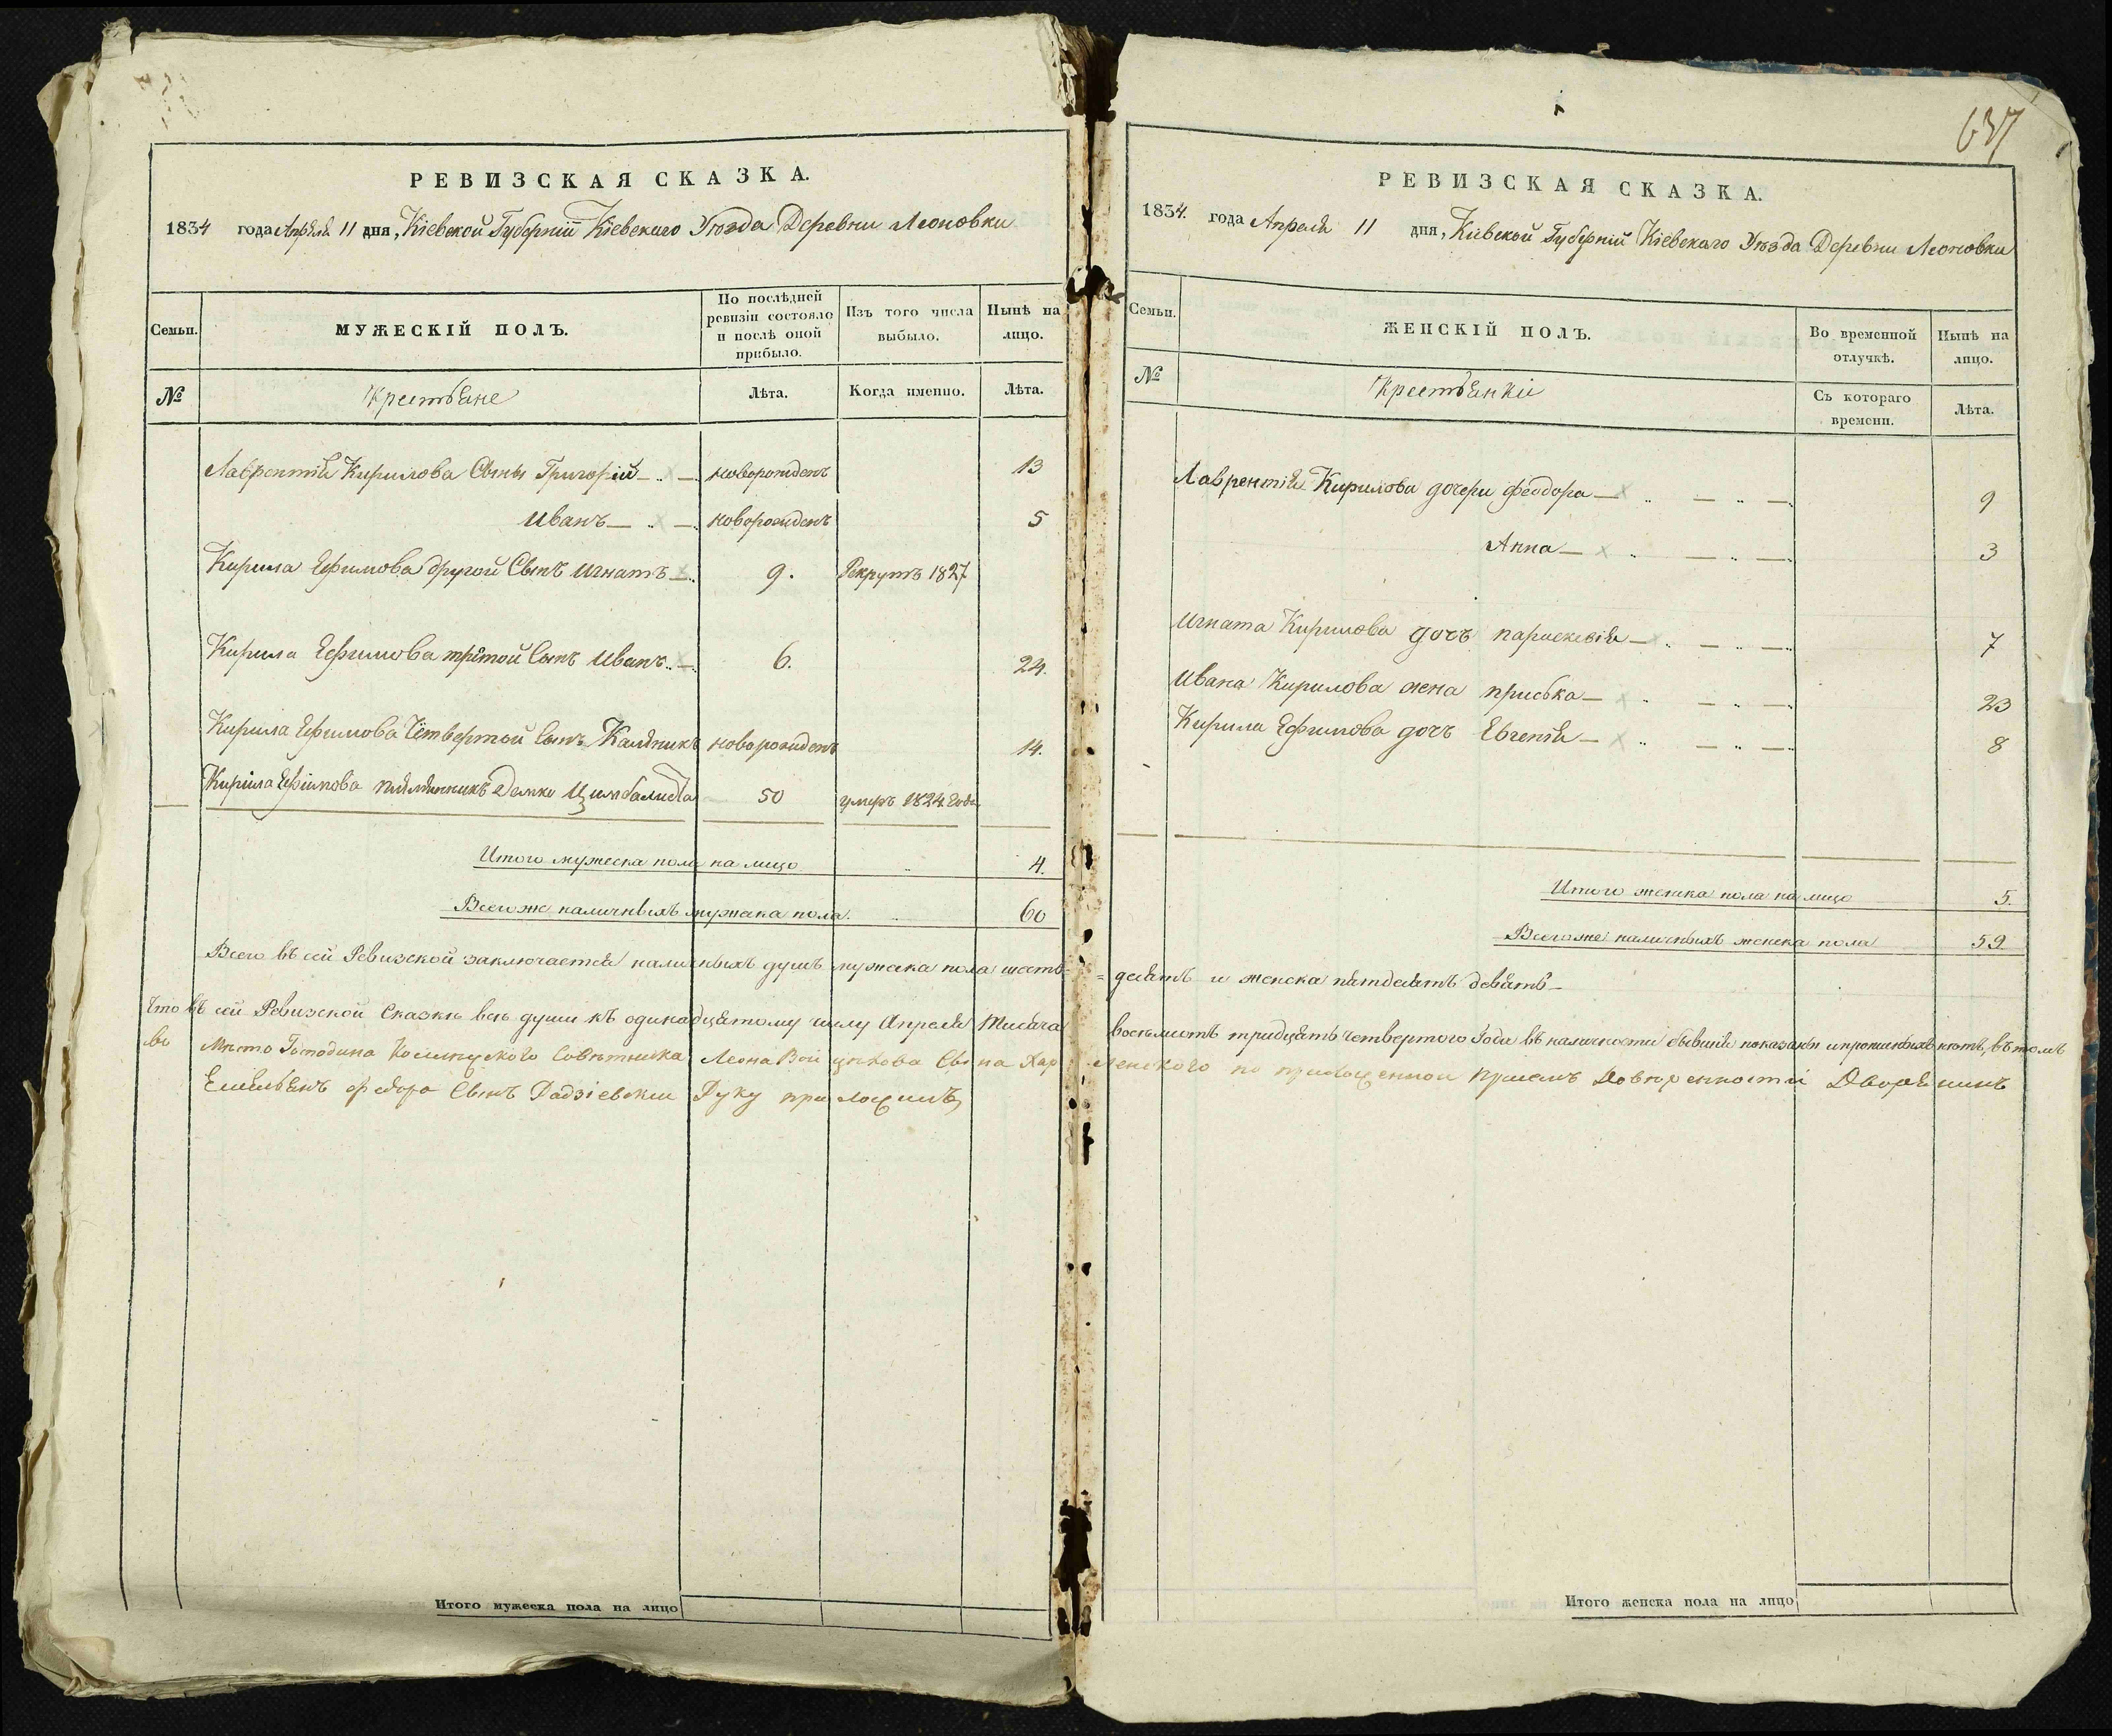 РЕВИЗСКАЯ СКАЗКА.
1834 года Апрѣля 11 дня, Кіевской Губерніи Кіевскаго Уѣзда Деревни Леоновки
Семьи.
МУЖЕСКІЙ ПОЛЪ.
По послѣдней ревизіи состояло и послѣ оной прибыло.
Изъ того числа выбыло.
Нынѣ на лицо.
№
Крестьяне
Лѣта.
Когда именно.
Лѣта.
Лаврентія Кирилова Сыны Григорій новорожденъ 13
Иванъ новорожденъ 5
Кирила Ефимова другой Сынъ Игнатъ 9. Рекрутъ 1827
Кирила Ефимова третой Сынъ Иванъ 6. 24.
Кирила Ефимова Четвертой Сынъ Каляникъ новорожденъ 14.
Кирила Ефимова племянникъ Демко Цимбалиста 50 умеръ 1824 Года
Итого мужеска пола на лицо 4.
Всего же наличныхъ мужеска пола 60
Итого мужеска пола на лицо
637
РЕВИЗСКАЯ СКАЗКА.
1834. года Апреля 11 дня, Кіевской Губерніи Кіевскаго Уѣзда Деревни Леоновки
Семьи.
ЖЕНСКІЙ ПОЛЪ.
Во временной отлучкѣ.
Нынѣ на лицо.
№
Крестьянки
Съ котораго времени.
Лѣта.
Лаврентія Кирилова дочери Феодора 9
Анна 3
Игната Кирилова дочъ параскевія 7
Ивана Кирилова жена приська 23
Кирила Ефимова дочъ Евгенія 8
Итого женска пола на лицо 5.
Всего же наличныхъ женска пола 59.
Всего въ сей Ревизской заключается наличныхъ душъ мужеска пола шесть=десятъ и женска пятдесятъ девять
Что въ сей Ревизской Сказкѣ всѣ души къ одинадцятому числу Апреля Тисяча восемьсотъ тридцять четвертого Года въ наличности бывшія показаны и прописныхъ нетъ, въ томъ
во Мѣсто Господина Совѣтника Леона Сына по приложенной Довѣренности Дворянинъ
Емельянъ федора Сынъ Радзіевскій Руку приложилъ
Итого женска пола на лицо